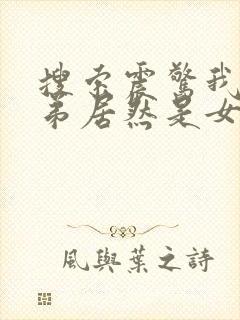 搜索震驚我
弟居然是女
風與葉之詩